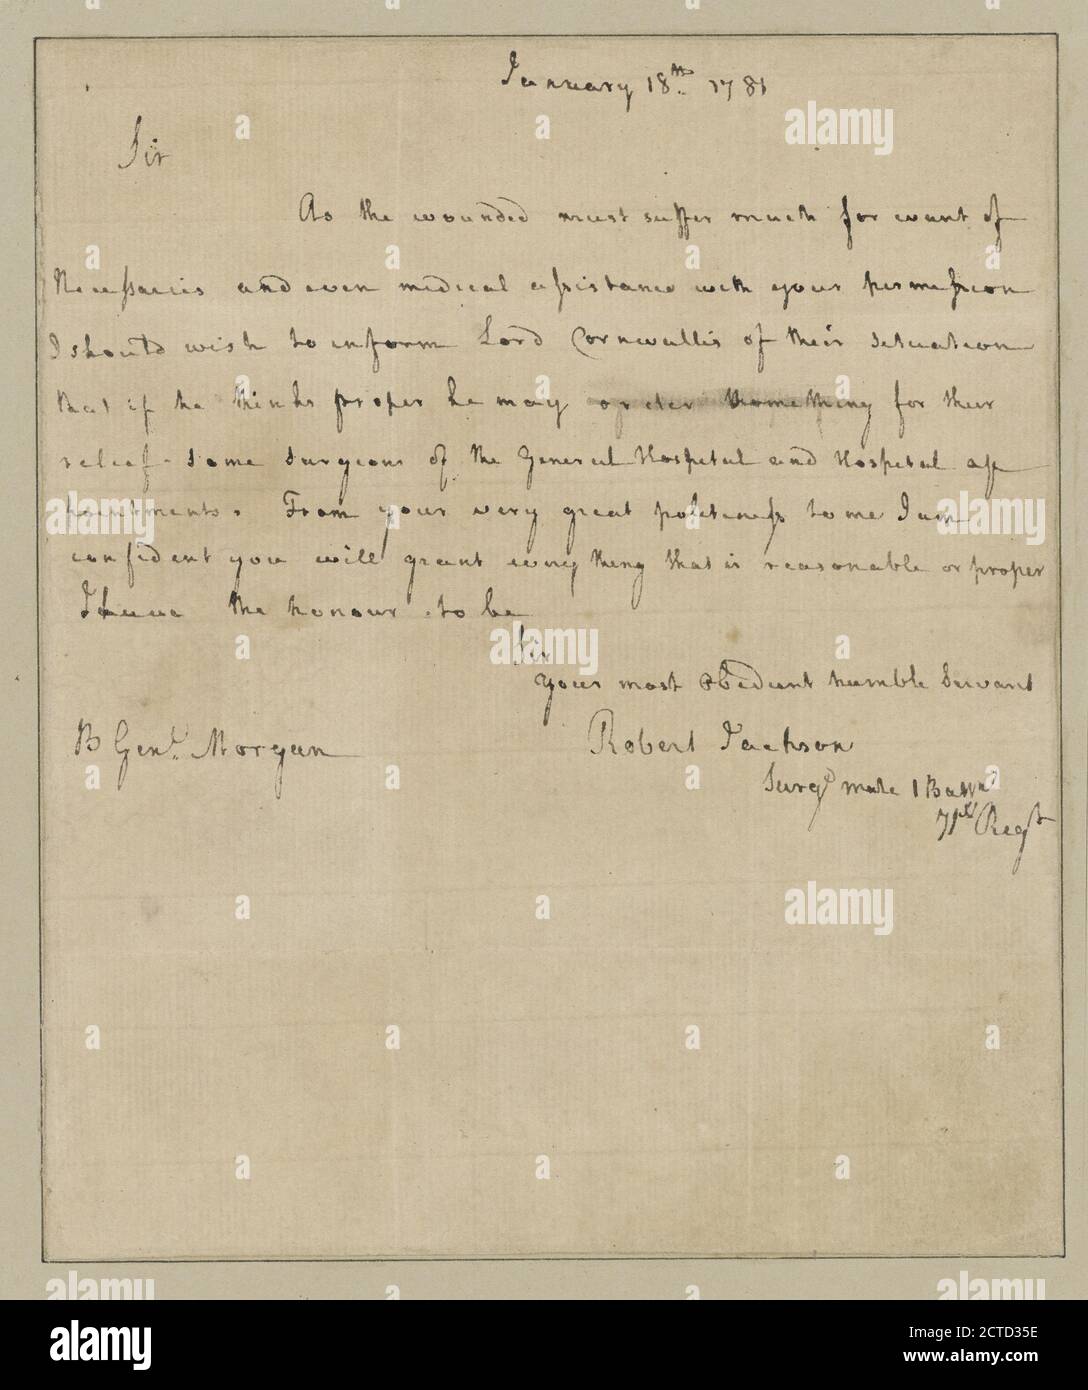 January 18th. 1781
Sir
As the wounded must suffer much for want of
Necessaries and even medical assistance with your permission
I should wish to inform Lord Cornwallis of their situation
that if he thinks proper he may order something for their
relief - some surgeons of the General Hospital and Hospital ap
pointments. From your very great politeness to me I am
confident you will grant every thing that is reasonable or proper
I have the honour to be
Sir
Your most obedient humble Servant
B Genl. Morgan Robert Jackson
Surgn mate 1 Battn
71st Regt
alamy
Image ID: 2CTD35E
www.alamy.com